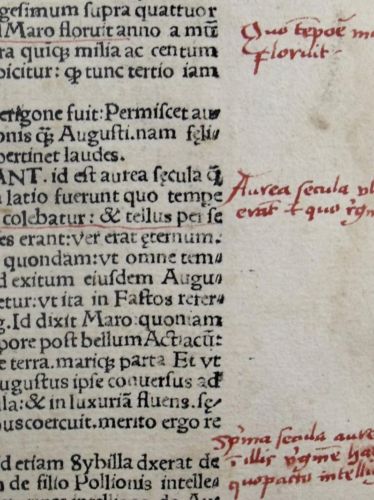 gesimum supra quattuor
Maro floruit anno a mũ
ra quiq; milia ac centum
picitur: tunc tertio iam
erigone fuit: Permiscet au-
onis Augusti. nam fęli-
pertinet laudes.
ANT. id est aurea sęcula
latio fuerunt quo tempe
colebatur: & tellus per se
es erant: ver erat ęternum.
quondam: vt omne tem-
d exitum eiusdem Augu-
etur: vt ita in Fastos refer-
g. Id dixit Maro: quoniam
pore post bellum Actiacũ:
e terra. mariq; parta Et vt
ugustus ipse conuersus ad
la: & in luxuriã fluens. sę-
us coercuit. merito ergo re
d etiam Sybilla dxerat de
de filio Pollionis intelle-
Quo tẽpoẽ
floruit
Aurea secula
erãt quo
secula aure
illis
quo pacto intellig